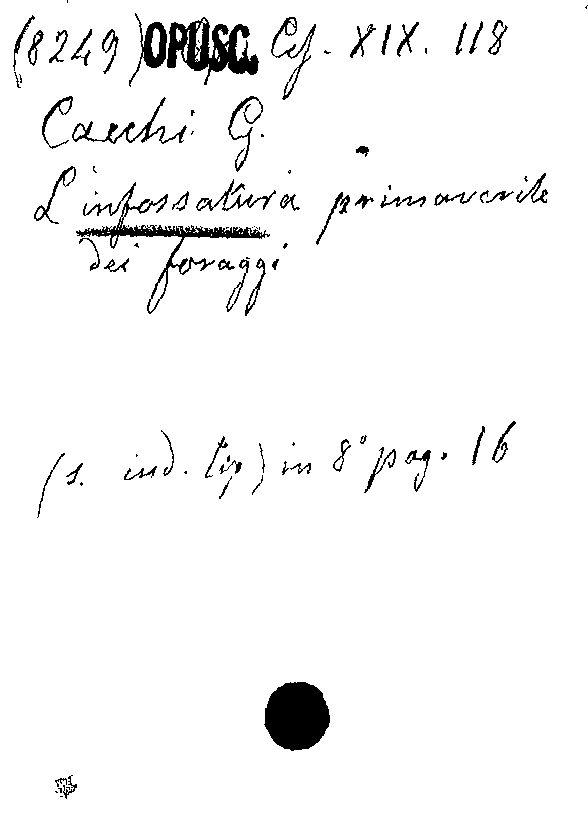 (8249) OPUSC. Cf. XIX. 118
Cacchi G.
L'infossatura primaverile
dei foraggi
(s. ind. tip) in 8° pag. 16